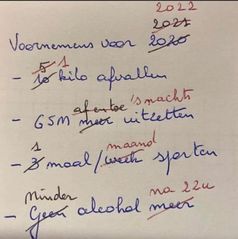 2022
2021
Voornemens voor 2020
5 1
- 10 kilo afvallen
af en toe 's nachts
- GSM meer uitzetten
1 maand
- 3 maal/week sporten
minder na 22u
- Geen alcohol meer